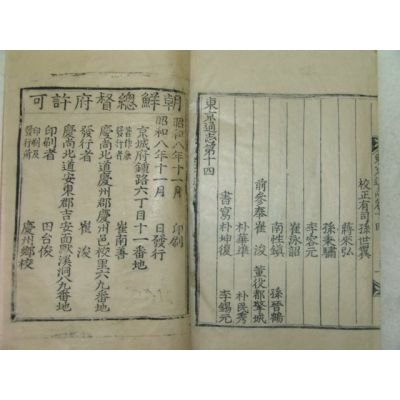 東京通志第十四
校正有司孫世翼
蔣來弘
孫秉驌
李容元
崔泳詔
南性鎮 孫晉鶴
前參奉崔浚 董役都擎城
朴華準 朴民秀
書寫朴坤復 李錫元
朝鮮總督府許可
昭和八年十一月 印刷
昭和八年十一月 日發行
京城府鍾路六丁目十一番地
著作兼發行者 崔南善
慶尚北道慶州郡慶州邑校里六九番地
發行者 崔浚
慶尚北道安東郡吉安面 溪洞八九番地
印刷者 田台俊
印刷及發行所 慶州鄉校